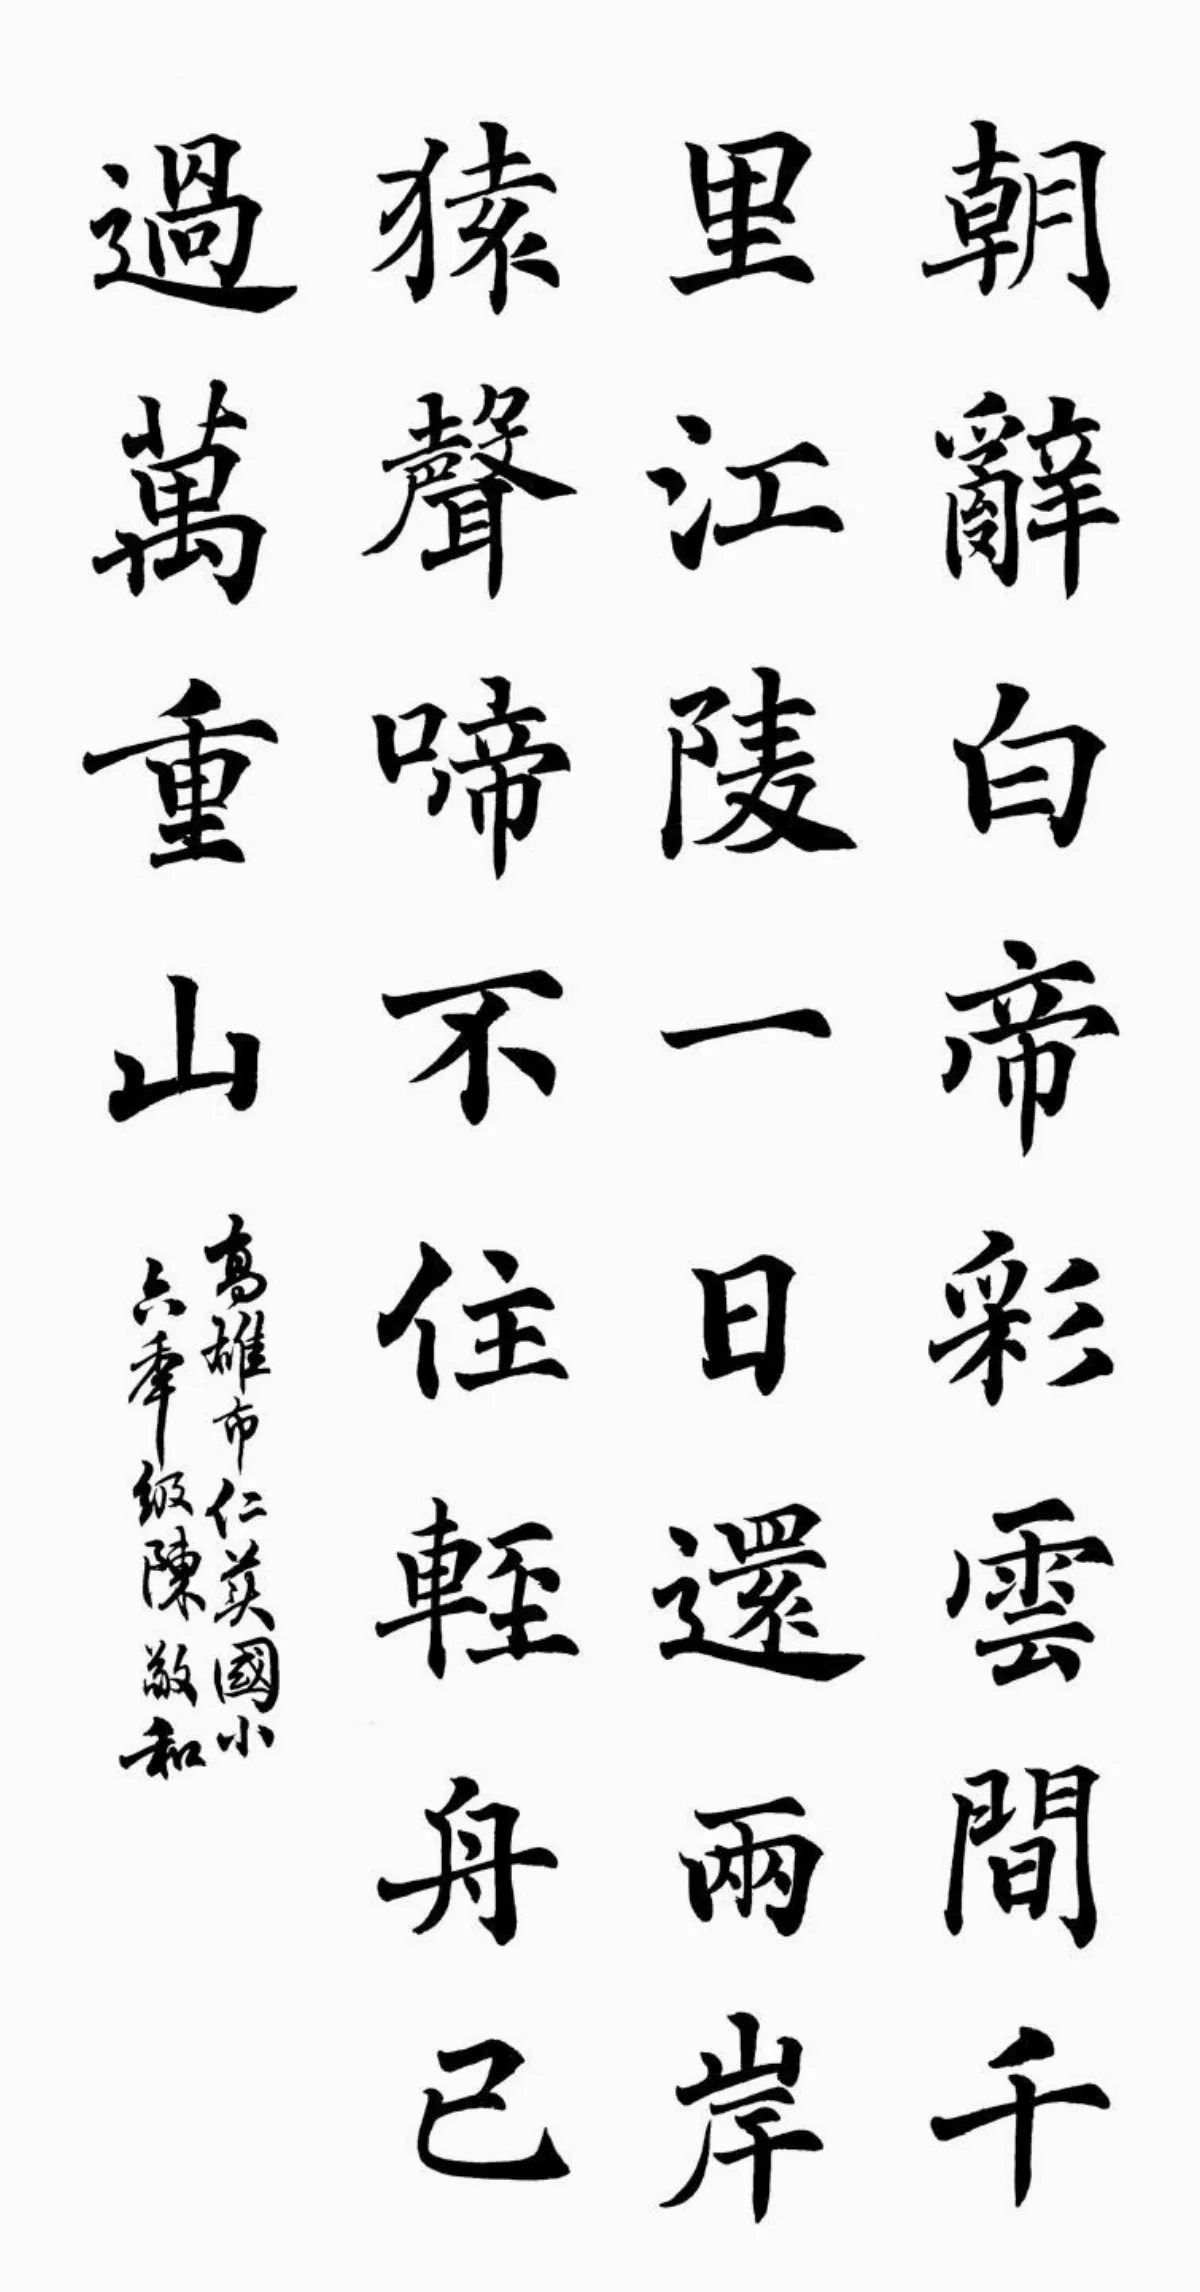 朝辭白帝彩雲間千
里江陵一日還兩岸
猿聲啼不住輕舟已
過萬重山
高雄市仁美國小
六年級陳敬和